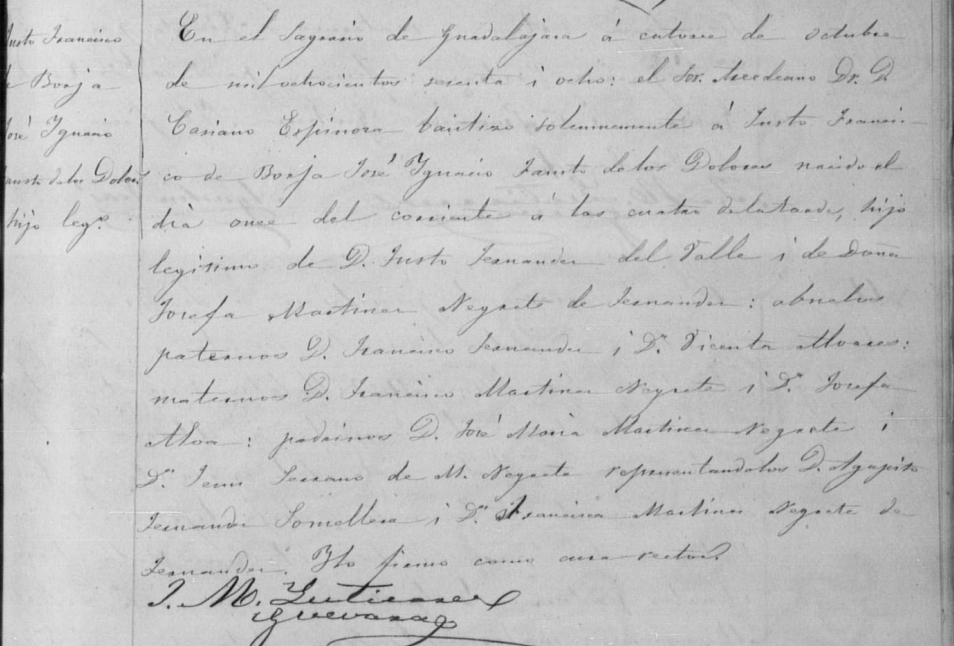 Justo Francisco
de Borja
José Ygnacio
Fausto de los Dolores
hijo leg.°
En el Sagrario de Guadalajara á catorce de octubre
de mil ochocientos sesenta i ocho: el Sor. Arcedeano Dr. D.
Casiano Espinosa bautizó solemnemente á Justo Francis-
co de Borja José Ygnacio Fausto de los Dolores nacido el
día once del corriente á las cuatro de la tarde, hijo
legitimo de D. Justo Fernandez del Valle i de Doña
Josefa Martinez Negrete de Fernandez: abuelos
paternos D. Francisco Fernandez i D.ª Vicenta
maternos D. Francisco Martinez Negrete i D.ª Josefa
Alva: padrinos D. José Maria Martinez Negrete i
D.ª Serrano de M. Negrete representandolos D. Agapito
Fernandez Somellera i D.ª Francisca Martinez Negrete de
Fernandez. Ylo firmo como cura rector.
J. M. Gutierrez
Guevara